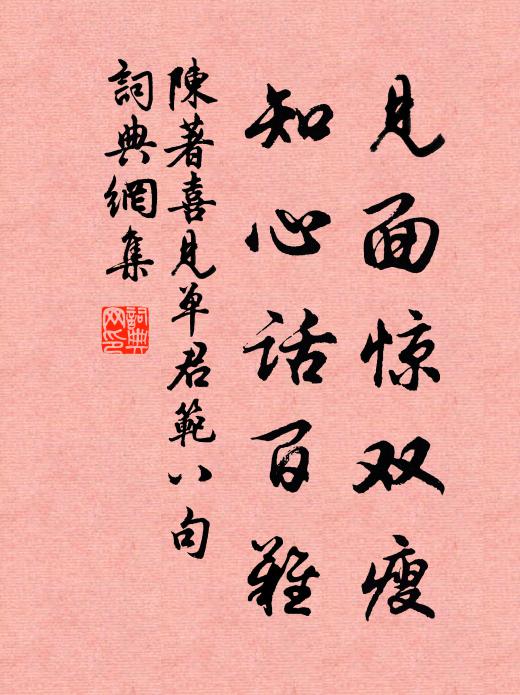 见面惊双瘦
知心话百難
陳著喜見单君範八句
詞典網集
詞典
网印